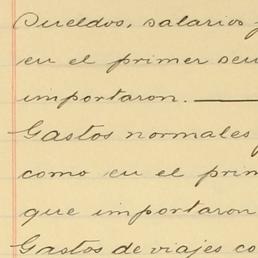 Sueldos, salarios y
en el primer sem
importaron. ———
Gastos normales
como en el prim
que importaron
Gastos de viajes co